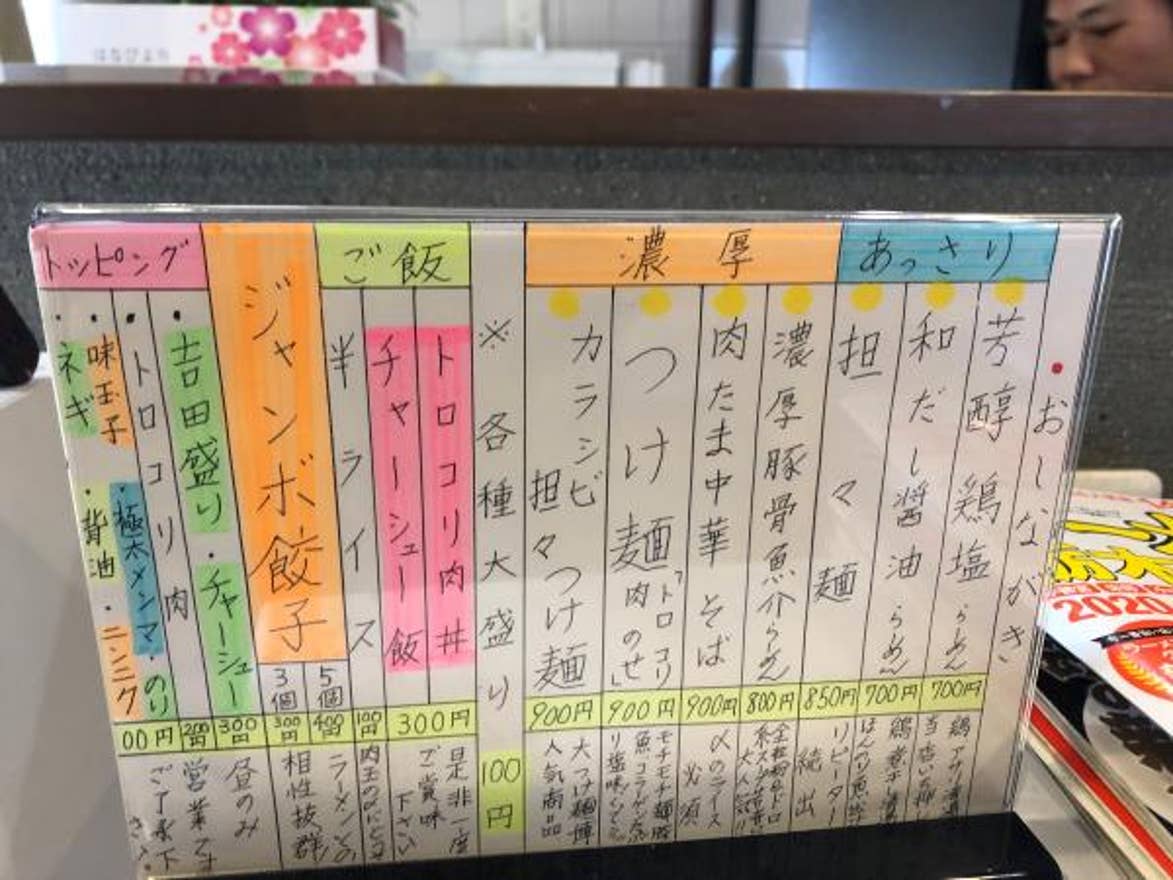 ・おしながき
あっさり
芳醇鶏塩らーめん
700円
和だし醤油らーめん
700円
担々麺
850円
リピーター
続出
濃厚
濃厚豚骨魚介らーめん
800円
肉たま中華そば
900円
〆のライス
必須
つけ麺「トロコリ
肉のせ」
900円
カラシビ
担々つけ麺
900円
人気商品
※各種大盛り
100円
ご飯
トロコリ肉丼
チャーシュー飯
300円
是非一度
ご賞味
下さい
半ライス
100円
ジャンボ餃子
5個
400円
3個
300円
ラーメンの
相性抜群
トッピング
・吉田盛り・チャーシュー
300円
・トロコリ肉
200円
・味玉子・極太メンマ・のり
・ネギ・背油・ニンニク
00円
昼のみ
営業です
ご了承下
2020